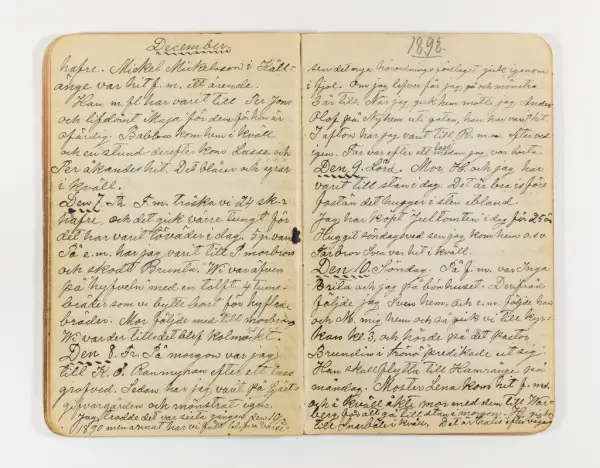 December.
hafre. Mickel Mickelsson i Källe-
änge var hit f. m. ett ärende.
Han m. fl har varit till Per Jons
och lifdömt "Maja" för dem för hon är
ofärdig. Babben kom hem i kväll
och en stund derefter kom Lasse och
Per åkandes hit. Det blåser och yrar
i kväll.
Den 7. Th. F. m. tröska vi 24 sk-r
hafre, och det gick värre tungt för
det har varit töväder i dag, 5 gr. varm
På e. m. har jag varit till P. morbrors
och skodt Brunta. Wi var äfven
på hyfveln med en tolft 4 tums-
bräder som vi bytte bort för hyflade
bräder. Mor följde med till morbrors
Wi var der tills det blef kolmörkt.
Den 8. Fr. På morgon var jag
till K. O. efter ett lass
grofved. Sedan har jag varit på
och mönstrat igen.
Jag trodde det var sista gången den
1890 men annat har vi fått
1893.
sen det nya härordningsförslaget gick igenom
i fjol. Om jag lefver får jag gå och mönstra
3 år till. När jag gick hem mötte jag Anders
Olof på Nyhem ute gatan, han har varit hit
I afton har jag varit till K. m. m. efter ved
igen. Far var efter ett lass medan jag var borta.
Den 9. Lörd. Mor, H. och jag har
varit till stan i dag. Det är bra isföre
fastän det hugger i sten ibland.
Jag har köpt Jultomten i dag för 25 öre
Hugget söndagsved sen jag kom hem o. s. v.
Farbror Sven var hit i kväll.
Den 10. Söndag. På f. m. var Inga
Brita och jag på bönhuset. Derifrån
följde jag Sven hem. Och e. m. följde han
och M. mig hem och så gick vi till kyr-
kan kl 3, och hörde på det pastor
Brundin i Trönö predikade ut sig.
Han skall flytta till Hamrånge på
måndag. Moster Lena kom hit f. m.
och i kväll åkte mor med dem till
berg för att gå till stan i morgon. H. gick
till i kväll. Det är halis efter vägen